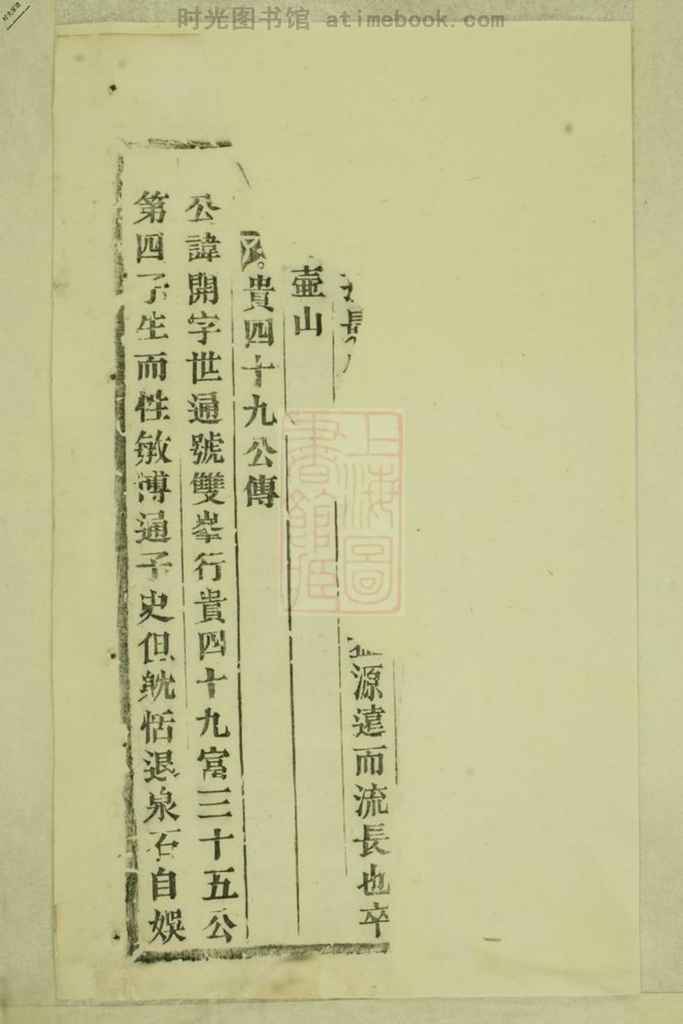 时光图书馆 atimebook.com
源遠而流長也卒
壺山
貴四十九公傳
公諱開字世通號雙峯行貴四十九富三十五公
第四子生而性敏博通子史但躭恬退泉石自娛
上海圖書館藏